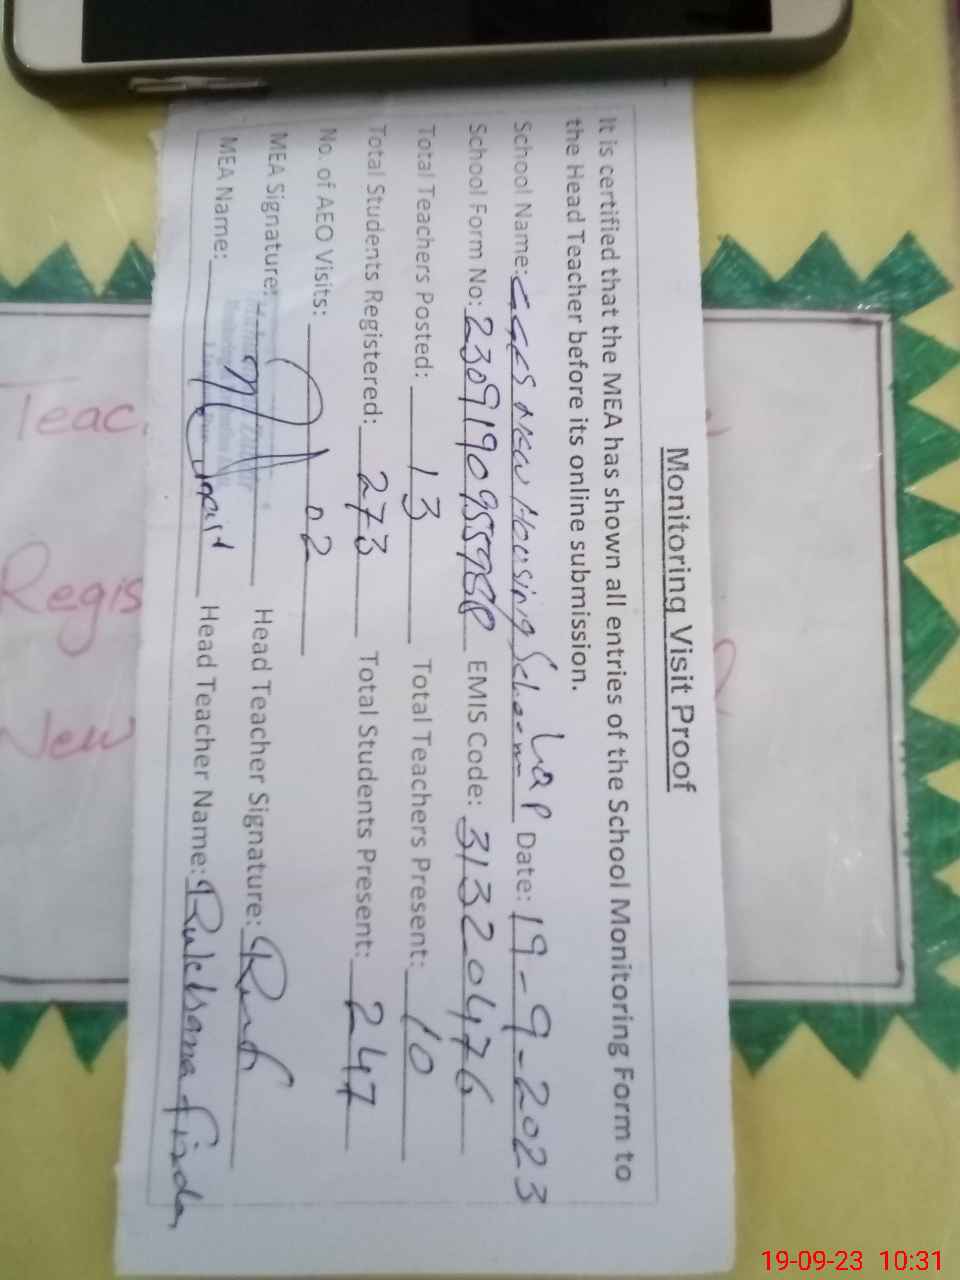 Monitoring Visit Proof
It is certified that the MEA has shown all entries of the School Monitoring Form to
the Head Teacher before its online submission.
School Name: New Housing Scheem LQP Date: 19-9-2023
School Form No: EMIS Code: 31320476
Total Teachers Posted: 13 Total Teachers Present: 10
Total Students Registered: 273 Total Students Present: 247
No. of AEO Visits: 02
MEA Signature: Head Teacher Signature:
MEA Name: Head Teacher Name: Rukhsana
Teac
Regis
New
19-09-23 10:31